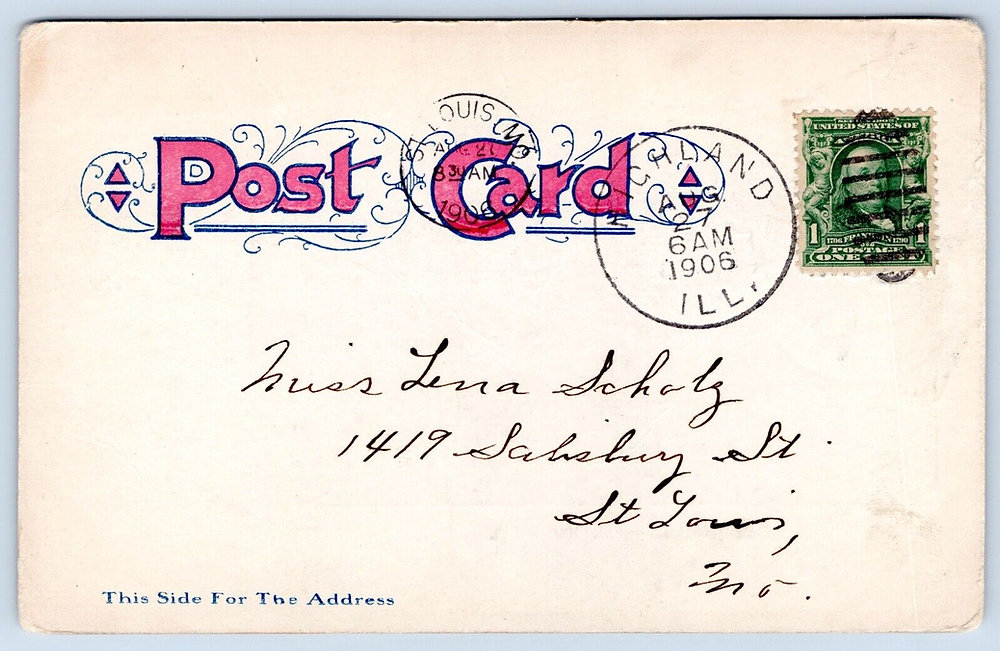 Post Card
ST. LOUIS, MO.
AUG 27
830 AM
1906
HIGHLAND
AUG
27
6AM
1906
ILL.
UNITED STATES OF
1 1706 FRANKLIN 1790 1
POSTAGE
ONE
Miss Lena Scholz
1419 Salisbury St
St Louis,
Mo.
This Side For The Address